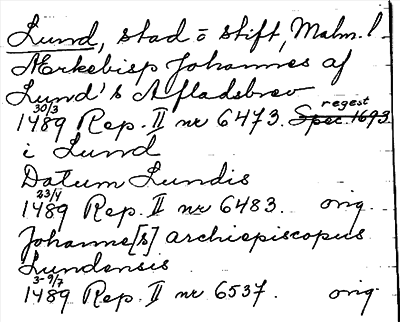 Lund, stad o stift, Malm. l.
Ærkebisp Johannes af
Lund's Afladsbrev
regest
30/3
1489 Rep. II nr 6473. Spec. 1693
i Lund
Datum Lundis
23/4
1489 Rep. II nr 6483. orig.
Johanne[s] archiepiscopus
Lundensis
3-9/7
1489 Rep. II nr 6537. orig